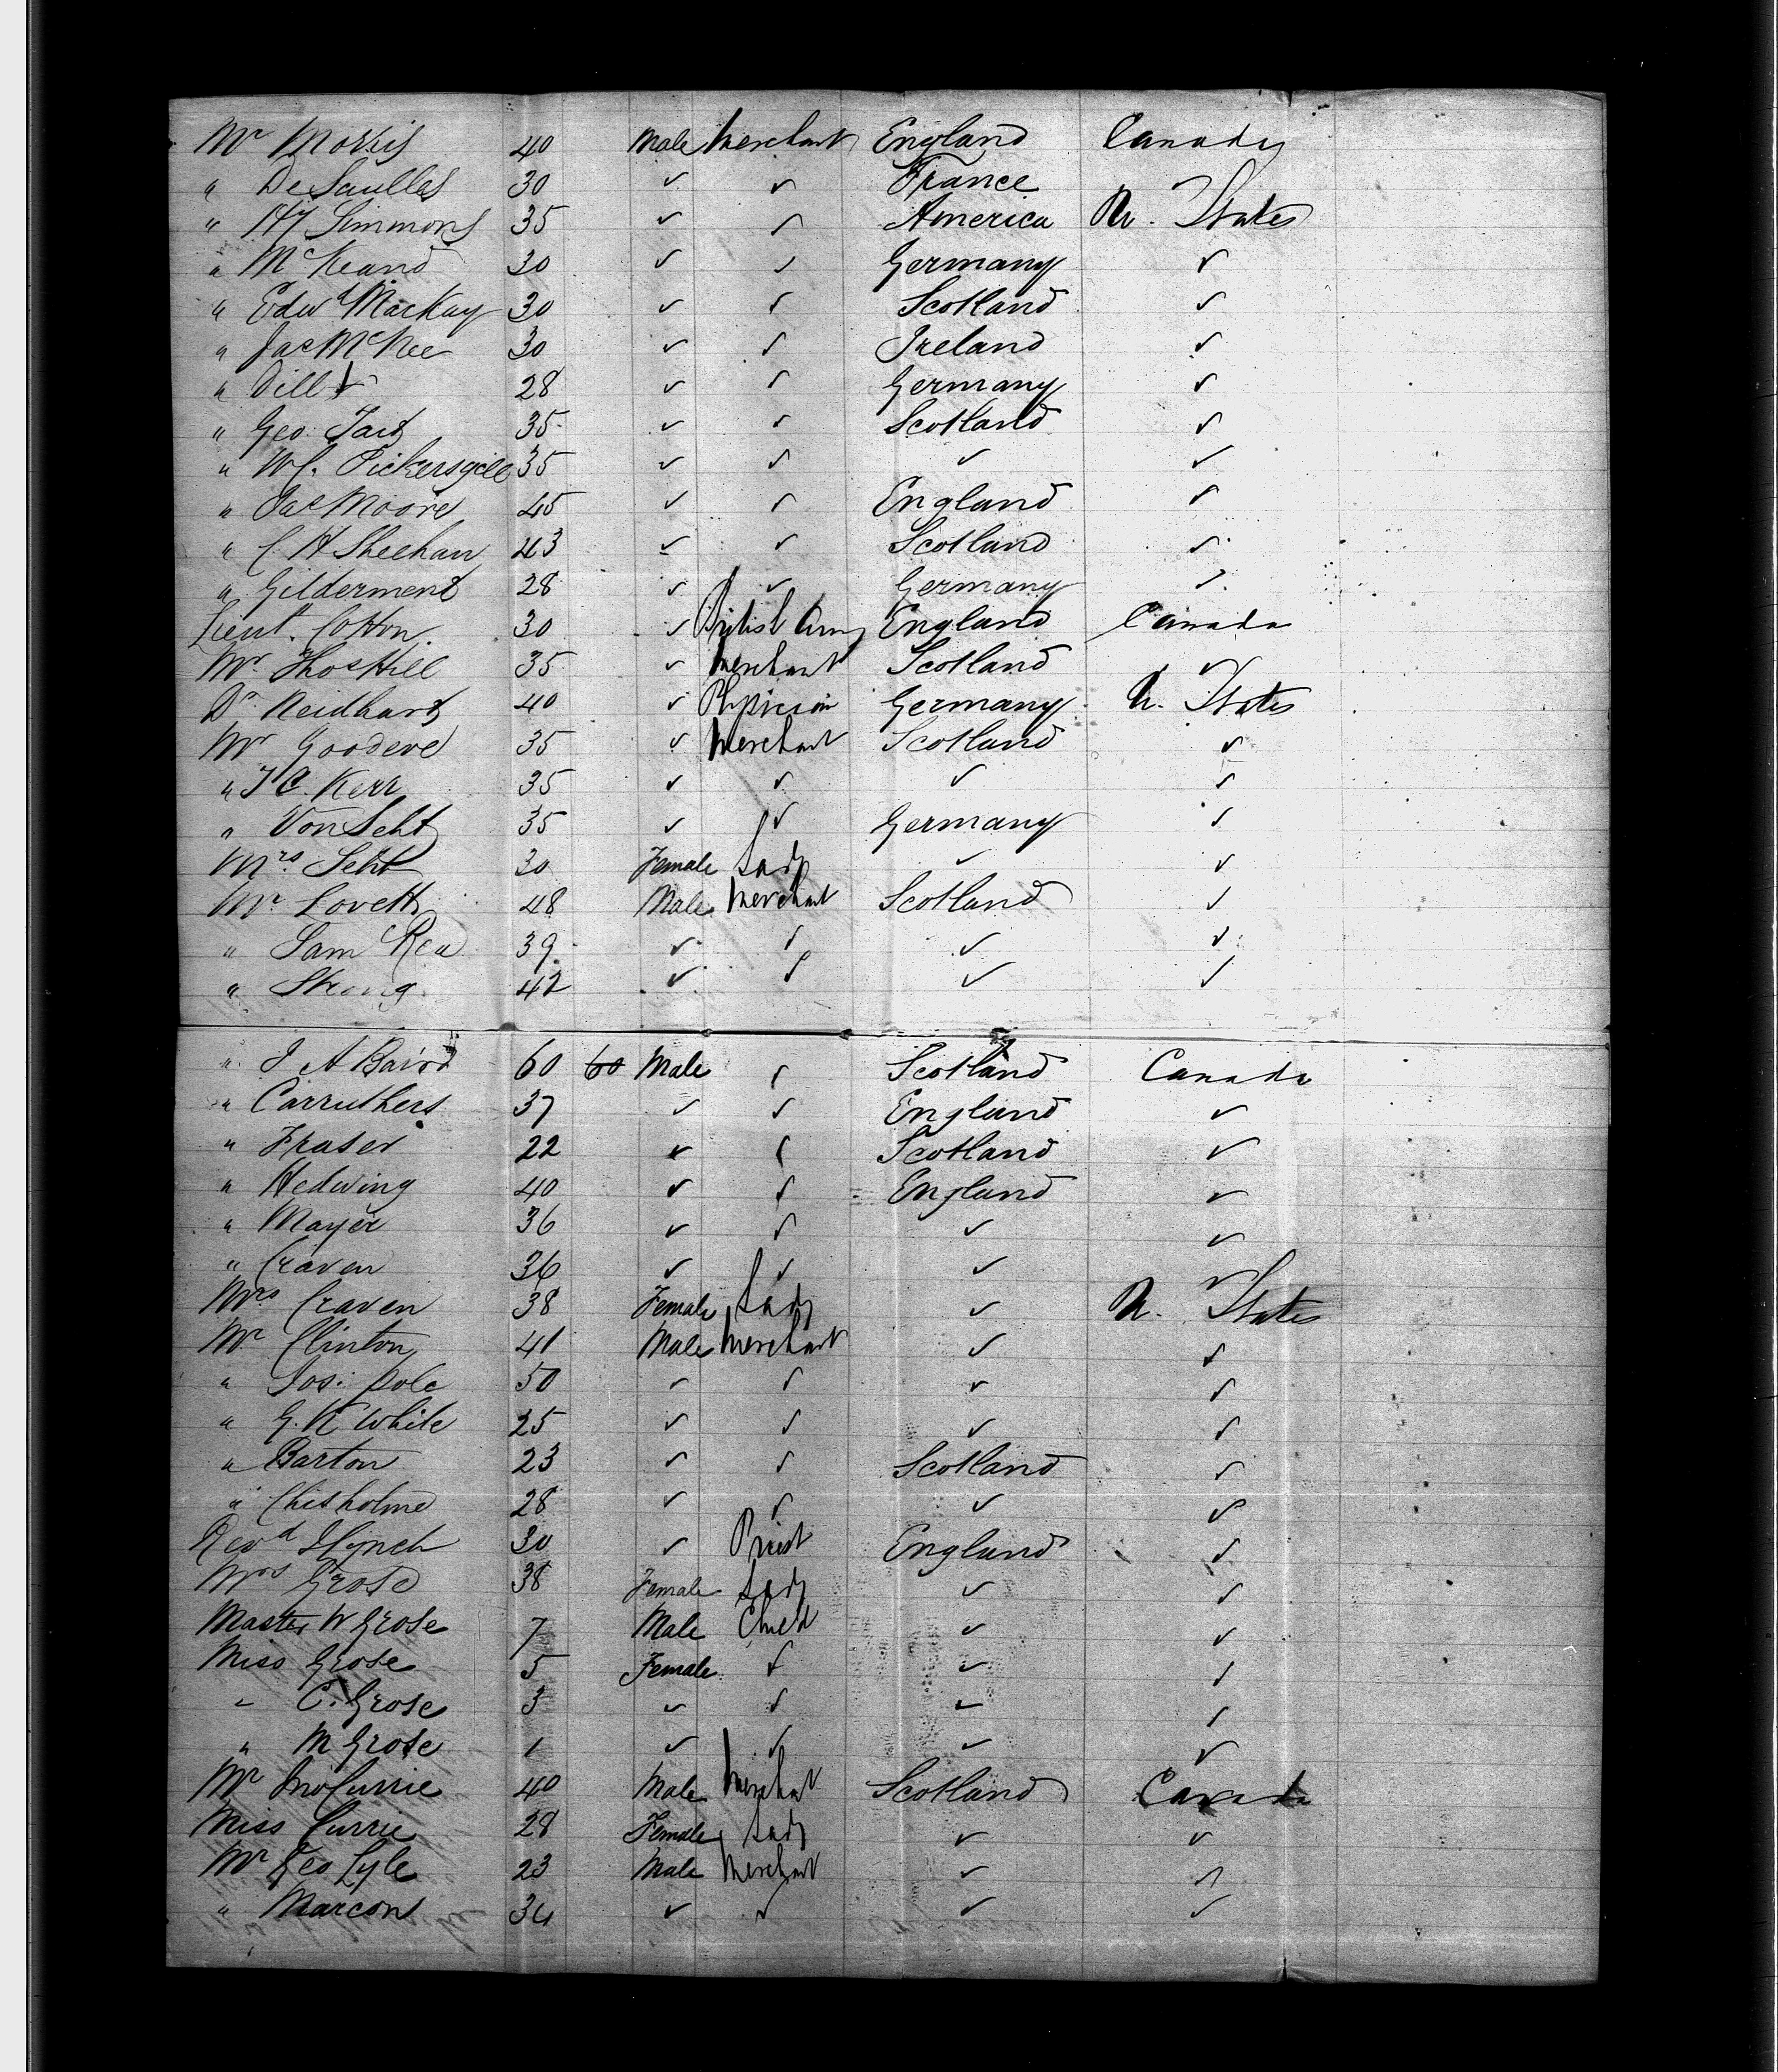 Mr Morris 40 Male Merchant England Canada
" DeSaulles 30 ✓ ✓ France
" Hy Simmons 35 ✓ ✓ America U. States
" McKeand 30 ✓ ✓ Germany ✓
" Edwd Mackay 30 ✓ ✓ Scotland ✓
" Jas McKee 30 ✓ ✓ Ireland ✓
" Dill 28 ✓ ✓ Germany ✓
" Geo. Tait 35 ✓ ✓ Scotland ✓
" Pickersgill 35 ✓ ✓ ✓ ✓
" Jas Moore 45 ✓ ✓ England ✓
" C. H Sheehan 43 ✓ ✓ Scotland ✓
" Gilderment 28 ✓ ✓ Germany ✓
Lieut. Cotton 30 ✓ British Army England Canada
Mr Thos Hill 35 ✓ Merchant Scotland ✓
Dr Neidhard 40 ✓ Physician Germany U. States
Mr Goodeve 35 ✓ Merchant Scotland ✓
" T C. Kerr 35 ✓ ✓ ✓ ✓
" Von Seht 35 ✓ ✓ Germany ✓
Mrs Seht 30 Female Lady ✓ ✓
Mr Lovett 48 Male Merchant Scotland ✓
" Sam Rea 39 ✓ ✓ ✓ ✓
" Strong 42 ✓ ✓ ✓ ✓
" J A Baird 60 60 Male ✓ Scotland Canada
" Carruthers 37 ✓ ✓ England ✓
" Fraser 22 ✓ ✓ Scotland ✓
" Hedwing 40 ✓ ✓ England ✓
" Mayer 36 ✓ ✓ ✓ ✓
" Craven 36 ✓ ✓ ✓ ✓
Mrs Craven 38 Female Lady ✓ U. States
Mr Clinton 41 Male Merchant ✓ ✓
" Jos. Pole 50 ✓ ✓ ✓ ✓
" G. K White 25 ✓ ✓ ✓ ✓
" Barton 23 ✓ ✓ Scotland ✓
" Chisholme 28 ✓ ✓ ✓ ✓
Revd Lynch 30 ✓ Priest England ✓
Mrs Grose 38 Female Lady ✓ ✓
Master W Grose 7 Male Child ✓ ✓
Miss Grose 5 Female ✓ ✓ ✓
" C. Grose 3 ✓ ✓ ✓ ✓
" M Grose 1 ✓ ✓ ✓ ✓
Mr Jno Currie 40 Male Merchant Scotland Canada
Miss Currie 28 Female Lady ✓ ✓
Mr Geo Lyle 23 Male Merchant ✓ ✓
" Marcon 34 ✓ ✓ ✓ ✓